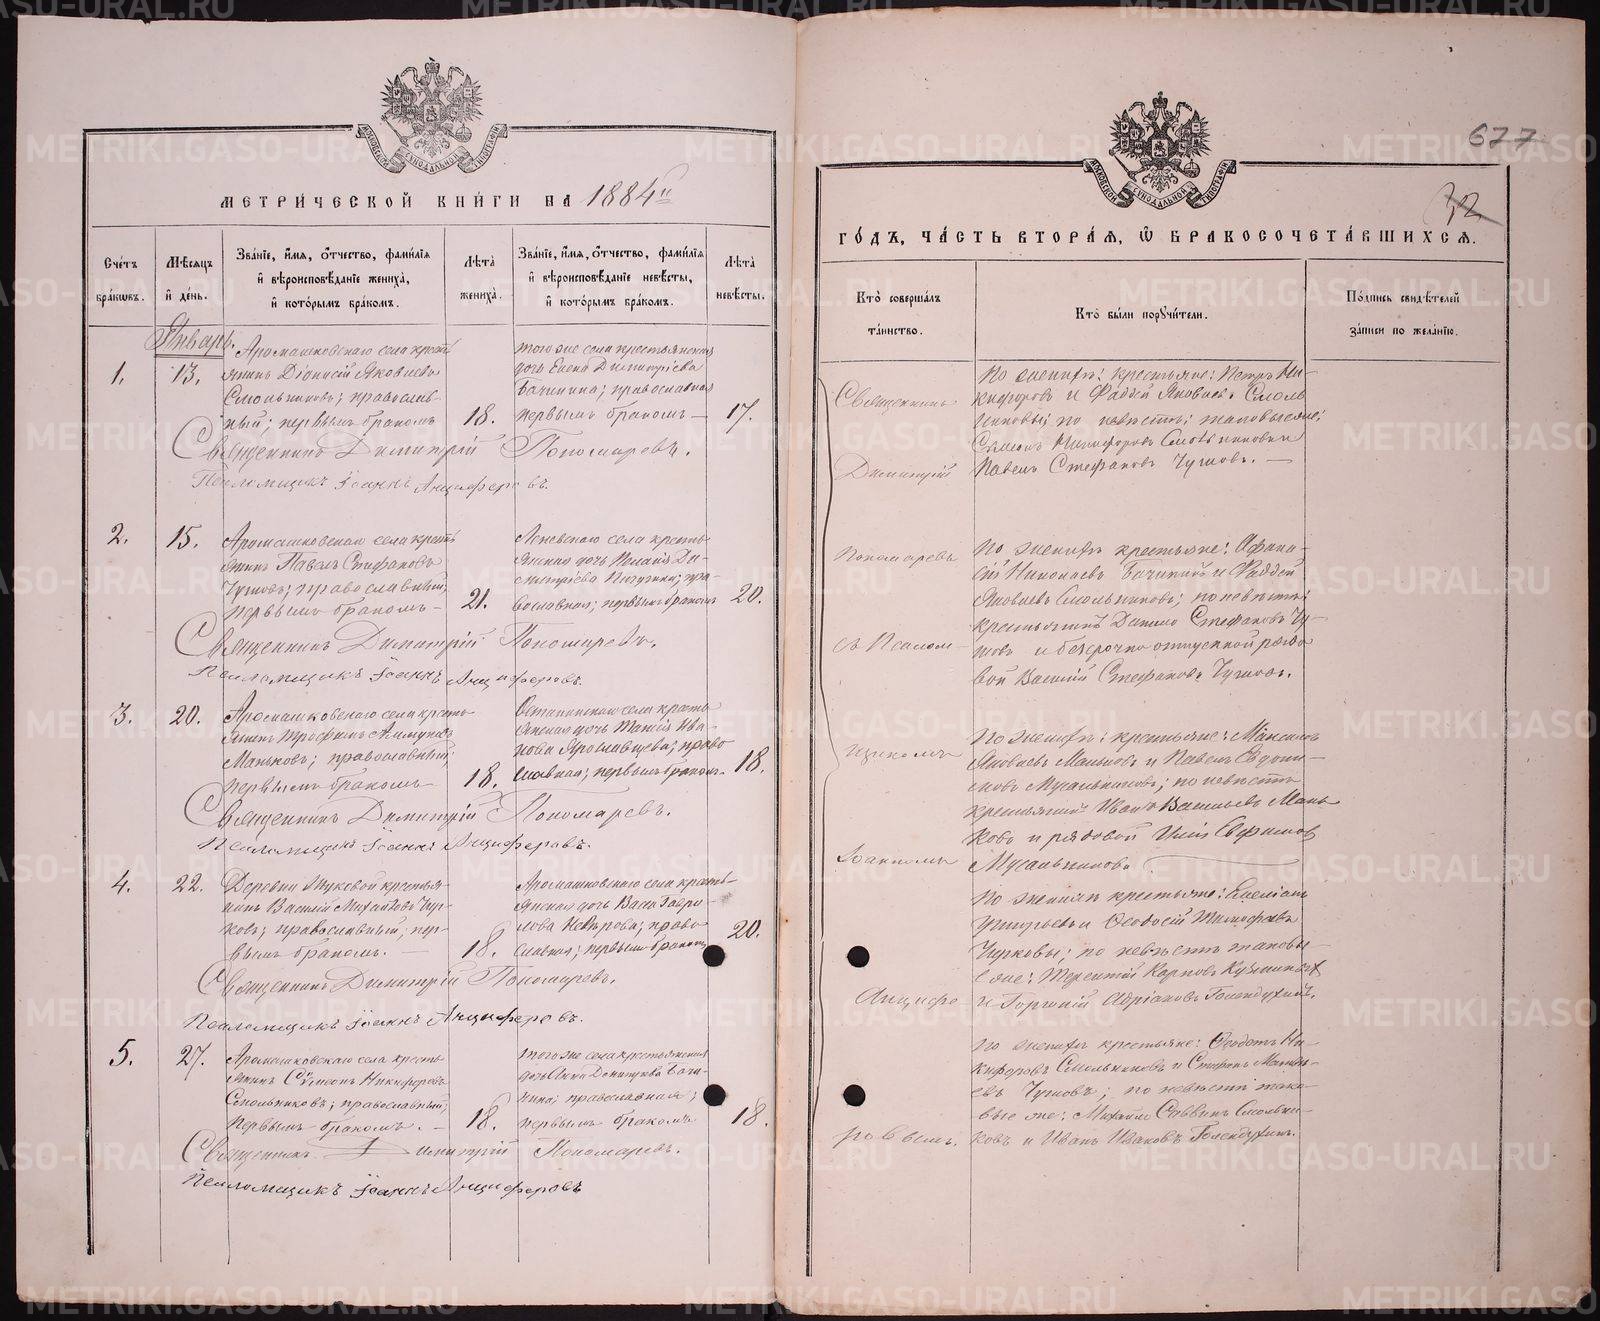 МЕТРИ́ЧЕСКОЙ КНИ́ГИ НА 1884й
Сче́тъ бра́кωвъ.
Мѣ́сяцъ и҆ де́нь.
Зва́нїе, и҆́мя, ѻ҆́тчество, фами́лїя и҆ вѣроисповѣ́данїе жениха̀, и҆ кото́рымъ бра́комъ.
Лѣ́та жениха̀.
Зва́нїе, и҆́мя, ѻ҆́тчество, фами́лїя и҆ вѣроисповѣ́данїе невѣ́сты, и҆ кото́рымъ бра́комъ.
Лѣ́та невѣ́сты.
Январь.
1.
13.
Аромашковскаго села кресть
янинъ Діонисій Яковлевъ
Смольниковъ; православ-
ный; первымъ бракомъ
18.
того же села крестьянская
дочь Елена Димитріева
Бачинина; православная
первымъ бракомъ —
17.
Священникъ Димитрій Пономаревъ.
Псаломщикъ Іоаннъ Анциферовъ.
2.
15.
Аромашковскаго села кресть
янинъ Павелъ Стефановъ
Чушовъ; православный;
первымъ бракомъ —
21.
села кресть-
янская дочь Ди-
митріева пра-
вославная; первымъ бракомъ
20.
Священникъ Димитрій Пономаревъ.
Псаломщикъ Іоаннъ Анциферовъ.
3.
20.
Аромашковскаго села кресть
янинъ Трофимъ
Маньковъ; православный;
первымъ бракомъ —
18.
Останинскаго села кресть
янская дочь Ива-
нова Ярославцева; право
славная; первымъ бракомъ.
18.
Священникъ Димитрій Пономаревъ.
Псаломщикъ Іоаннъ Анциферовъ.
4.
22.
Деревни крестья-
нинъ Василій Михайловъ Чур-
ковъ; православный; пер-
вымъ бракомъ. —
18.
Аромашковскаго села кресть-
янская дочь Васса Гаври-
лова право
славная; первымъ бракомъ
20.
Священникъ Димитрій Пономаревъ.
Псаломщикъ Іоаннъ Анциферовъ.
5.
27.
Аромашковскаго села кресть
янинъ Сѵмеонъ Никифоровъ
Смольниковъ; православный;
первымъ бракомъ. —
18.
того же села крестьянская
дочь Анна Бачи-
нина; православная;
первымъ бракомъ
18.
Священникъ Димитрій Пономаревъ.
Псаломщикъ Іоаннъ Анциферовъ
677
32
ГО́ДЪ, ЧА́СТЬ ВТОРА́Я, Ѡ҆ БРАКОСОЧЕТА́ВШИХСЯ.
Кто̀ соверша́лъ та́инство.
Кто̀ бы́ли порꙋчи́тели.
По́дпись свидѣ́телей за́писи по жела́нїю.
Священникъ
Димитрій
Пономаревъ
съ Псалом-
щикомъ
Іоанномъ
Анцифе
ровымъ.
По женихѣ: крестьяне: Петръ Ни-
кифоровъ и Фаддей Яковлевъ Смоль
никовы; по невѣстѣ: таковые же:
Сѵмеонъ Никифоровъ Смольниковъ и
Павелъ Стефановъ Чушовъ. —
По женихѣ крестьяне: Афана-
сій Николаевъ Бачининъ и Фаддей
Яковлевъ Смольниковъ; по невѣстѣ:
крестьянинъ Данило Стефановъ Чу-
шовъ и безсрочно отпускной рядо
вой Василій Стефановъ Чушовъ.
По женихѣ: крестьяне: Максимъ
Яковлевъ Маньковъ и Павелъ Евдоки-
мовъ Мусальниковъ; по невѣстѣ
крестьянинъ Иванъ Васильевъ Мань
ковъ и рядовой Илія Евфимовъ
Мусальниковъ
По женихѣ крестьяне:
Григорьевъ и Ѳеодосій Тимофеевъ
Чурковы; по невѣстѣ таковы-
е же: Терентій Карповъ
и Адріановъ Голендухинъ.
По женихѣ крестьяне: Ѳеодотъ Ни-
кифоровъ Смольниковъ и Стефанъ
евъ Чушовъ; по невѣстѣ тако-
вые же: Михаилъ Саввинъ Смольни-
ковъ и Иванъ Ивановъ Голендухинъ.